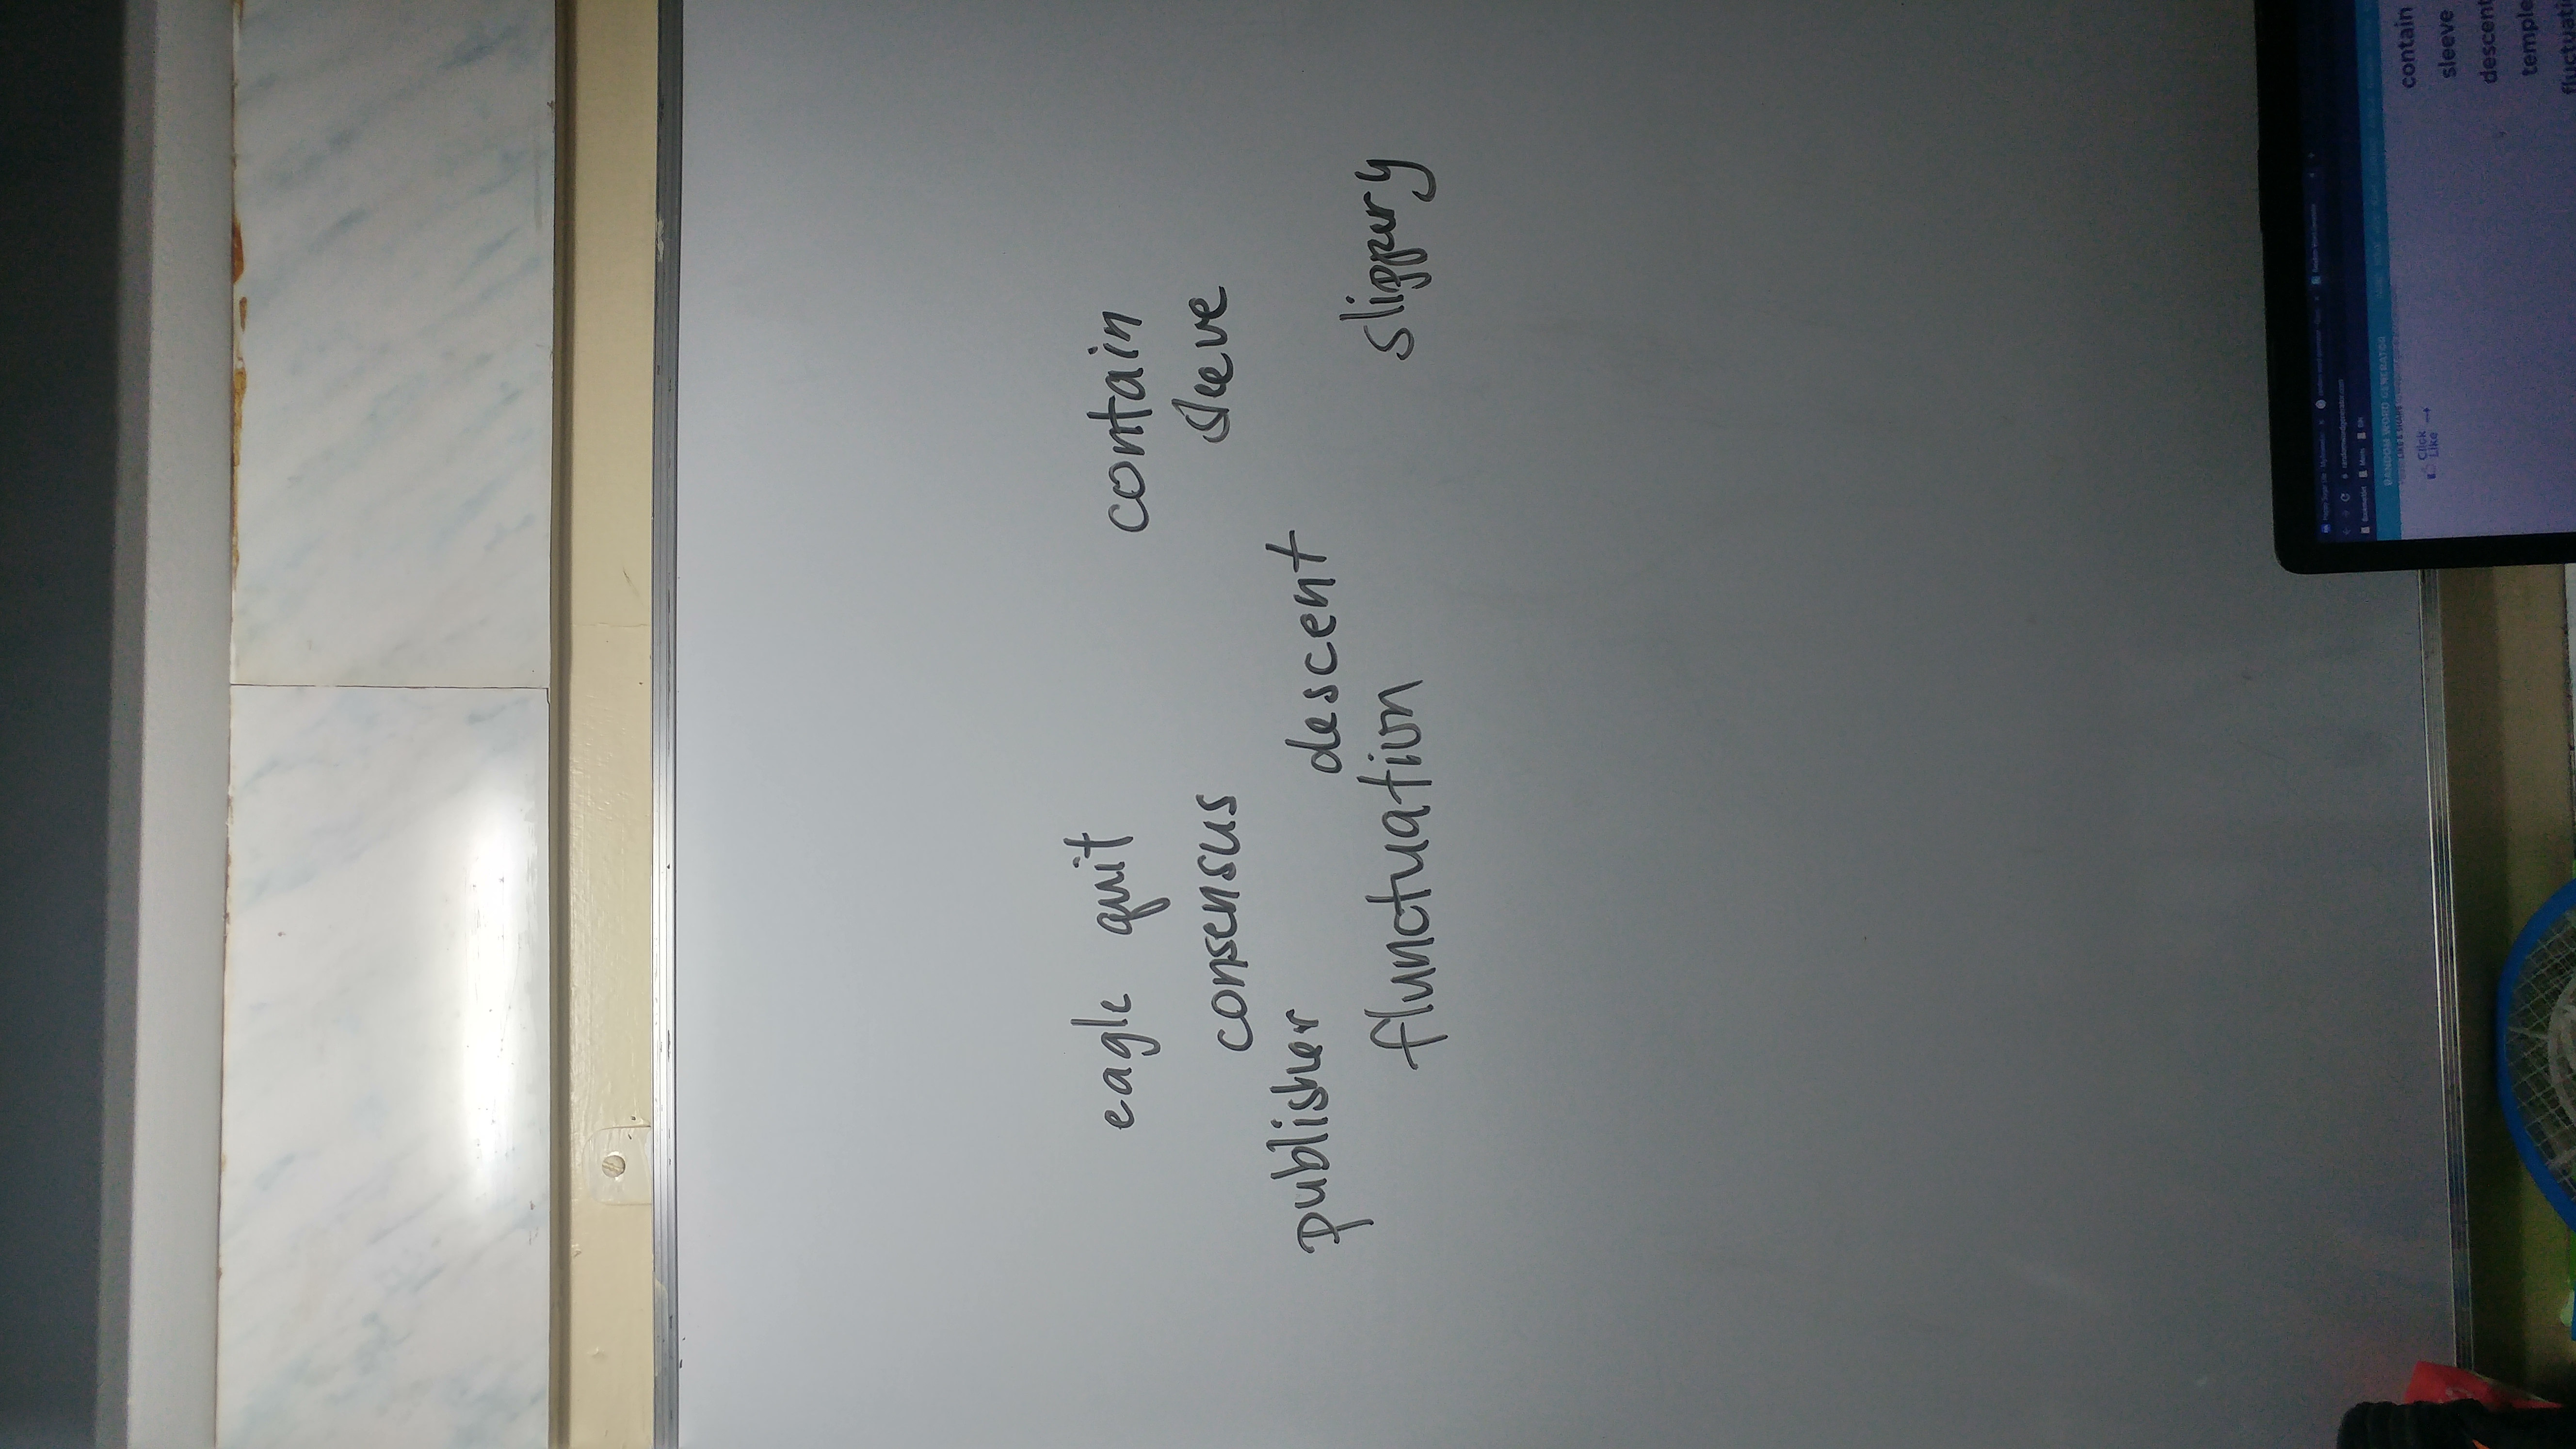 eagle quit contain
consensus sleeve
publisher descent
flunctuation slippery
RANDOM WORD GENERATOR
LIKE & SHARE
Click
Like
contain
sleeve
descent
temple
fluctuati